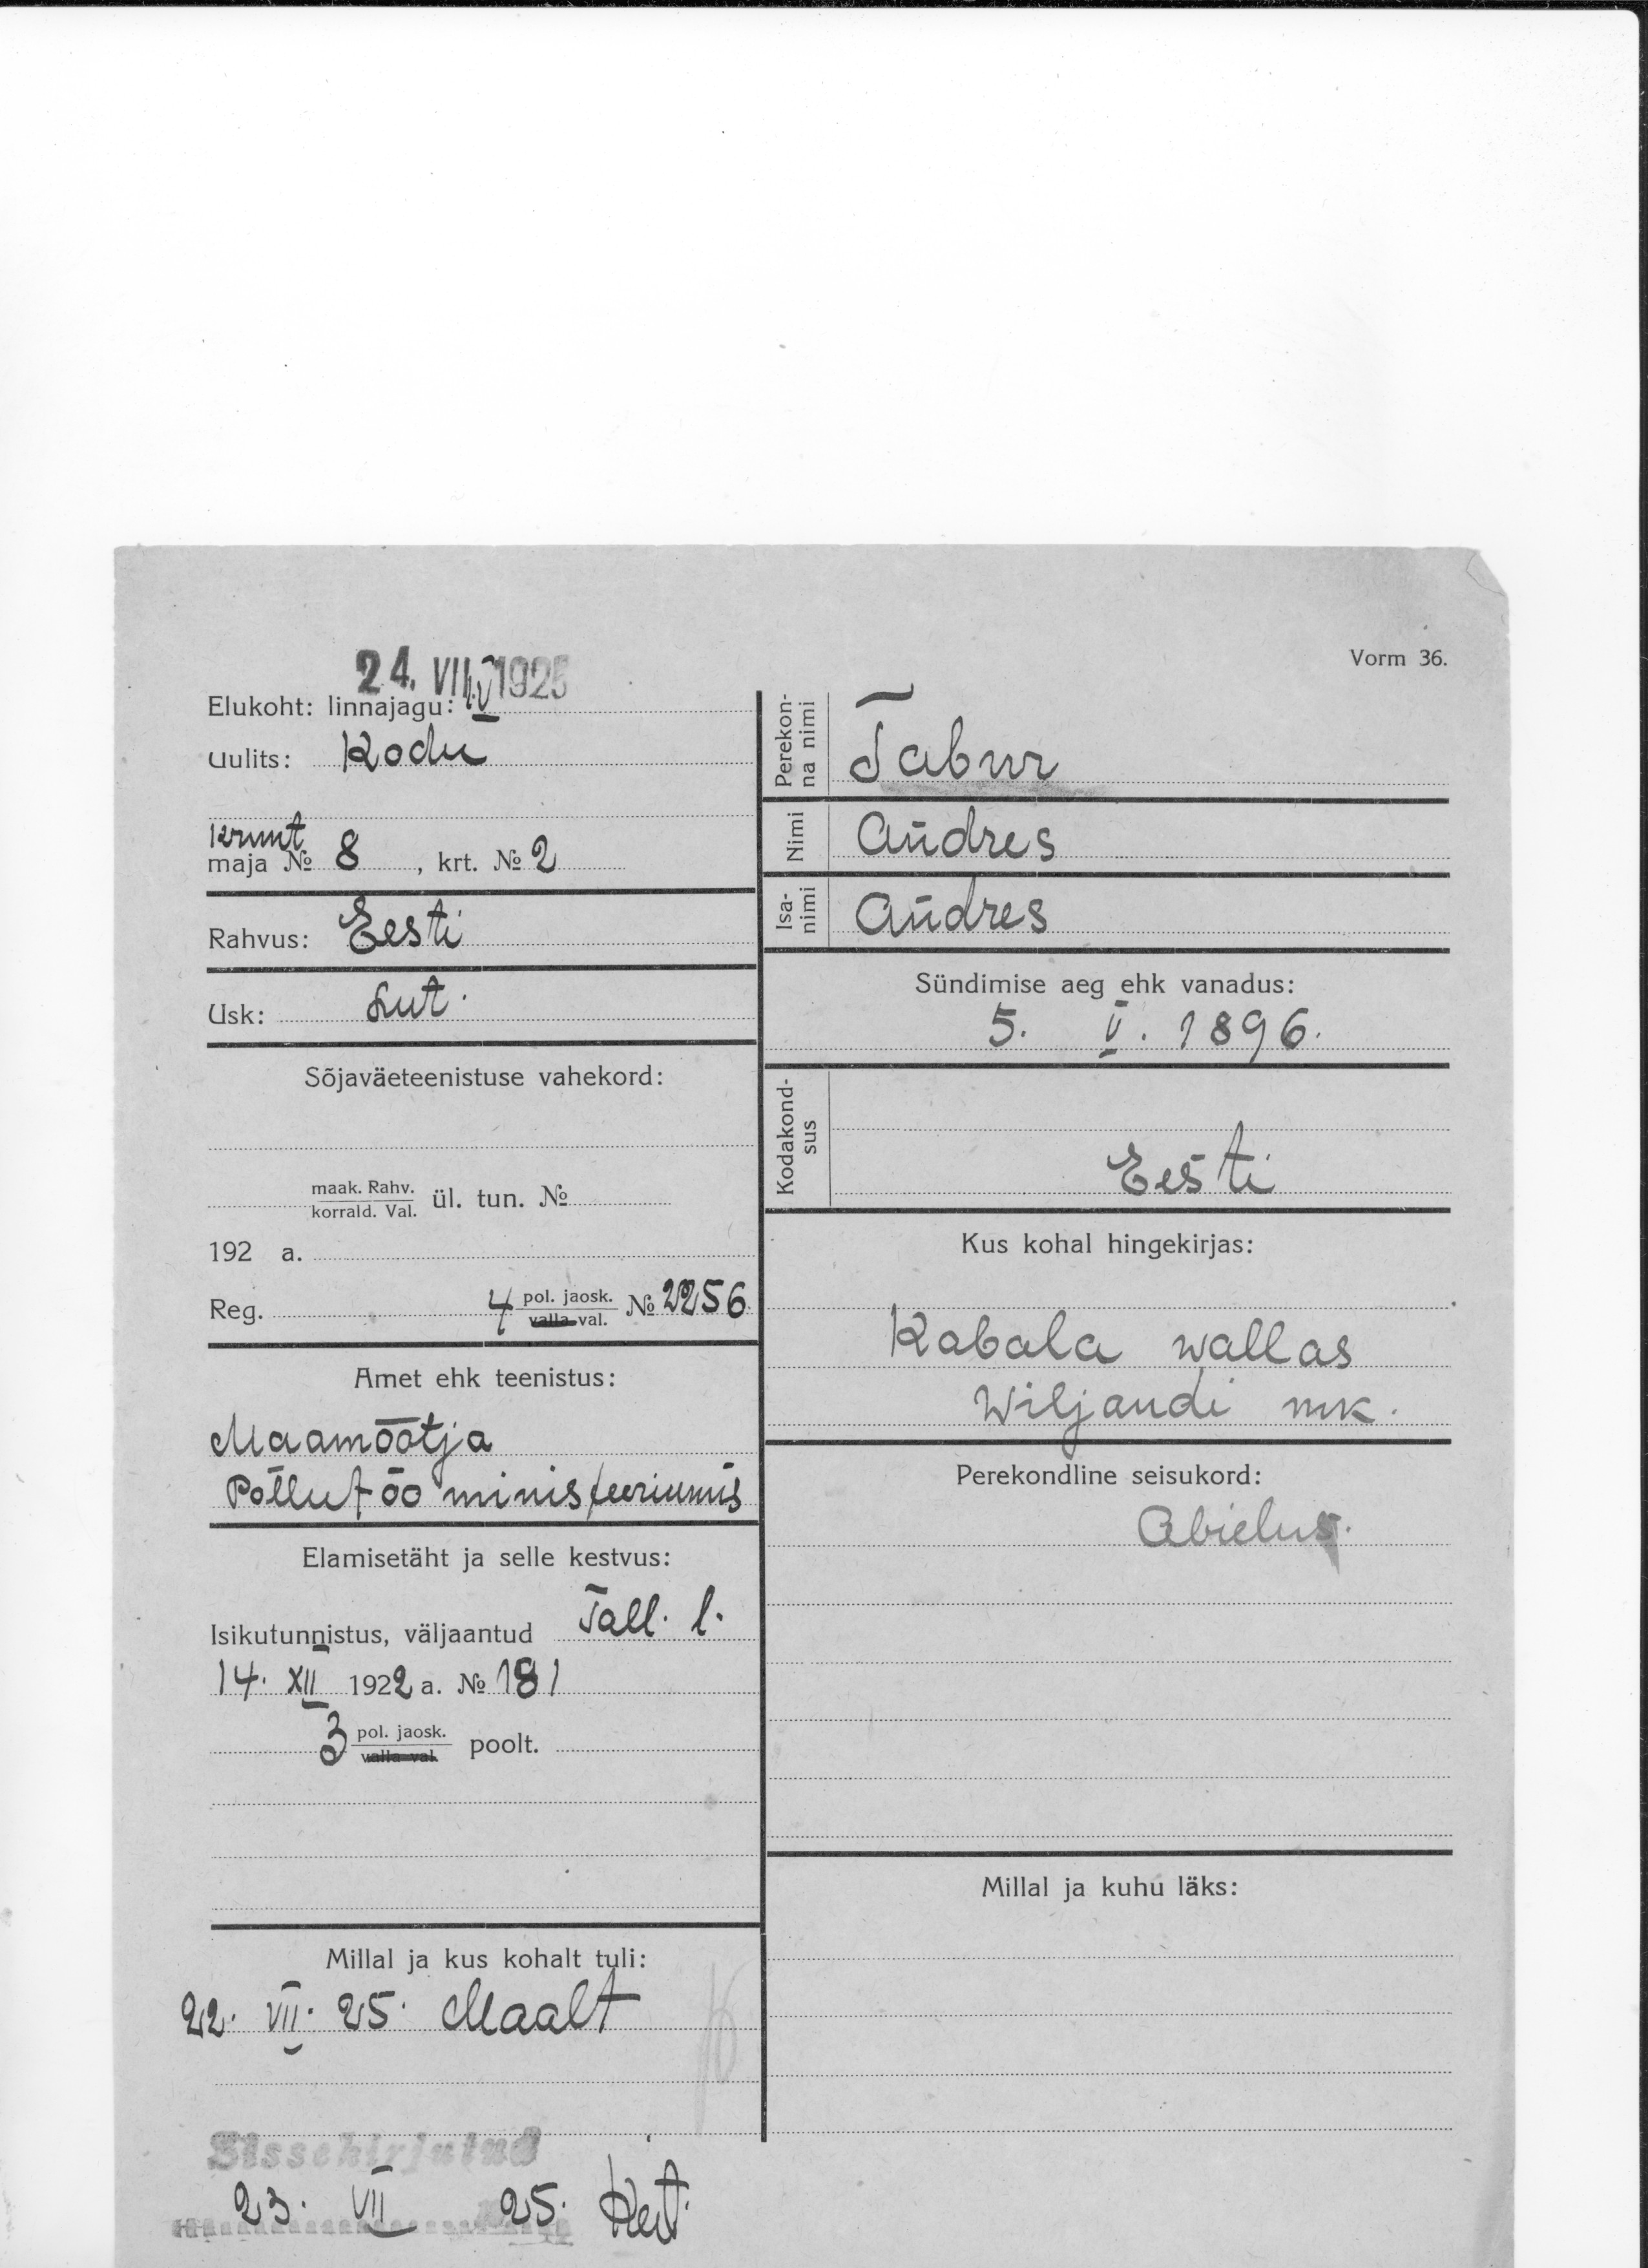 Vorm 36.
24. VII 1925
Elukoht: linnajagu: IV
Uulits: Kodu
Krunt
maja № 8, krt. № 2
Rahvus: Eesti
Usk: Lut.
Sõjaväeteenistuse vahekord:
maak. Rahv.
korrald. Val. ül. tun. №
192 a.
Reg. 4 pol. jaosk. № 2256
valla val.
Amet ehk teenistus:
Maamõõtja
Põllutöö ministeeriumis
Elamisetäht ja selle kestvus:
Isikutunnistus, väljaantud Tall. l.
14. XII 1922 a. № 181
3 pol. jaosk. poolt.
valla val.
Millal ja kus kohalt tuli:
22. VII. 25. Maalt
Sissekirjutud
23. VII 25.
Perekon-
na nimi
Tabur
Nimi
Andres
Isa-
nimi
Andres
Sündimise aeg ehk vanadus:
5. V. 1896.
Kodakond-
sus
Eesti
Kus kohal hingekirjas:
Kabala wallas
Wiljandi mk.
Perekondline seisukord:
Abielus.
Millal ja kuhu läks: